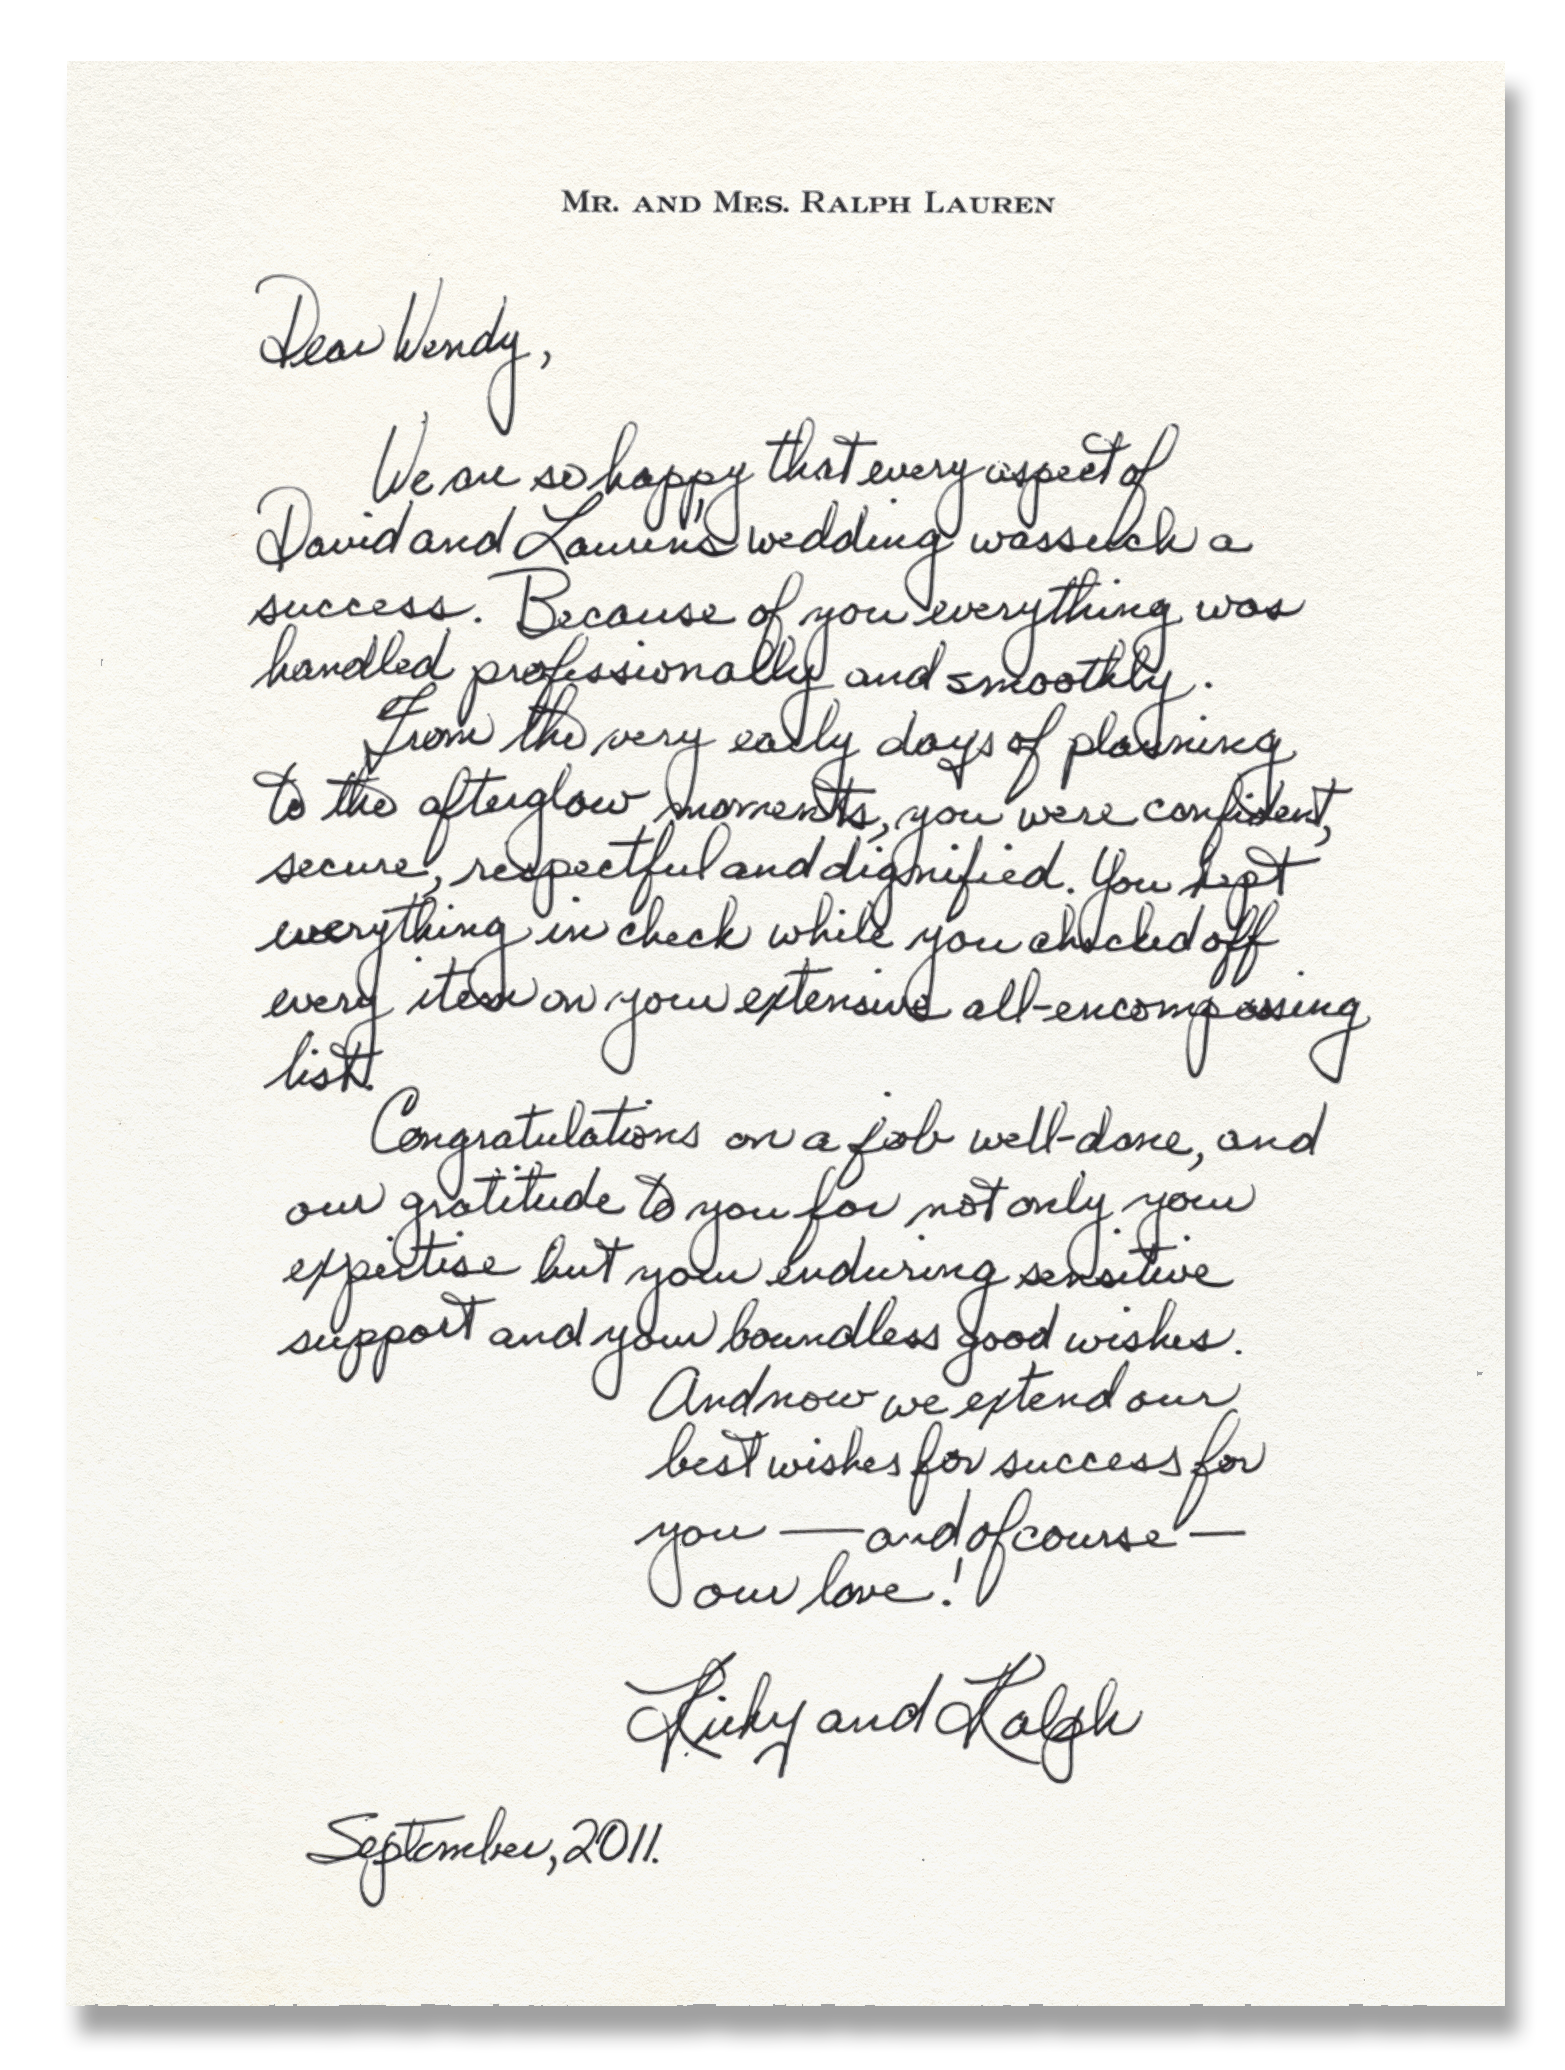 MR. AND MRS. RALPH LAUREN
Dear Wendy,
We are so happy that every aspect of
David and Lauren's wedding was such a
success. Because of you everything was
handled professionally and smoothly.
From the very early days of planning
to the afterglow moments, you were confident,
secure, respectful and dignified. You kept
everything in check while you checked off
every item on your extensive all-encompassing
list.
Congratulations on a job well-done, and
our gratitude to you for not only your
expertise but your enduring sensitive
support and your boundless good wishes.
And now we extend our
best wishes for success for
you — and of course —
our love!
Ricky and Ralph
September, 2011.